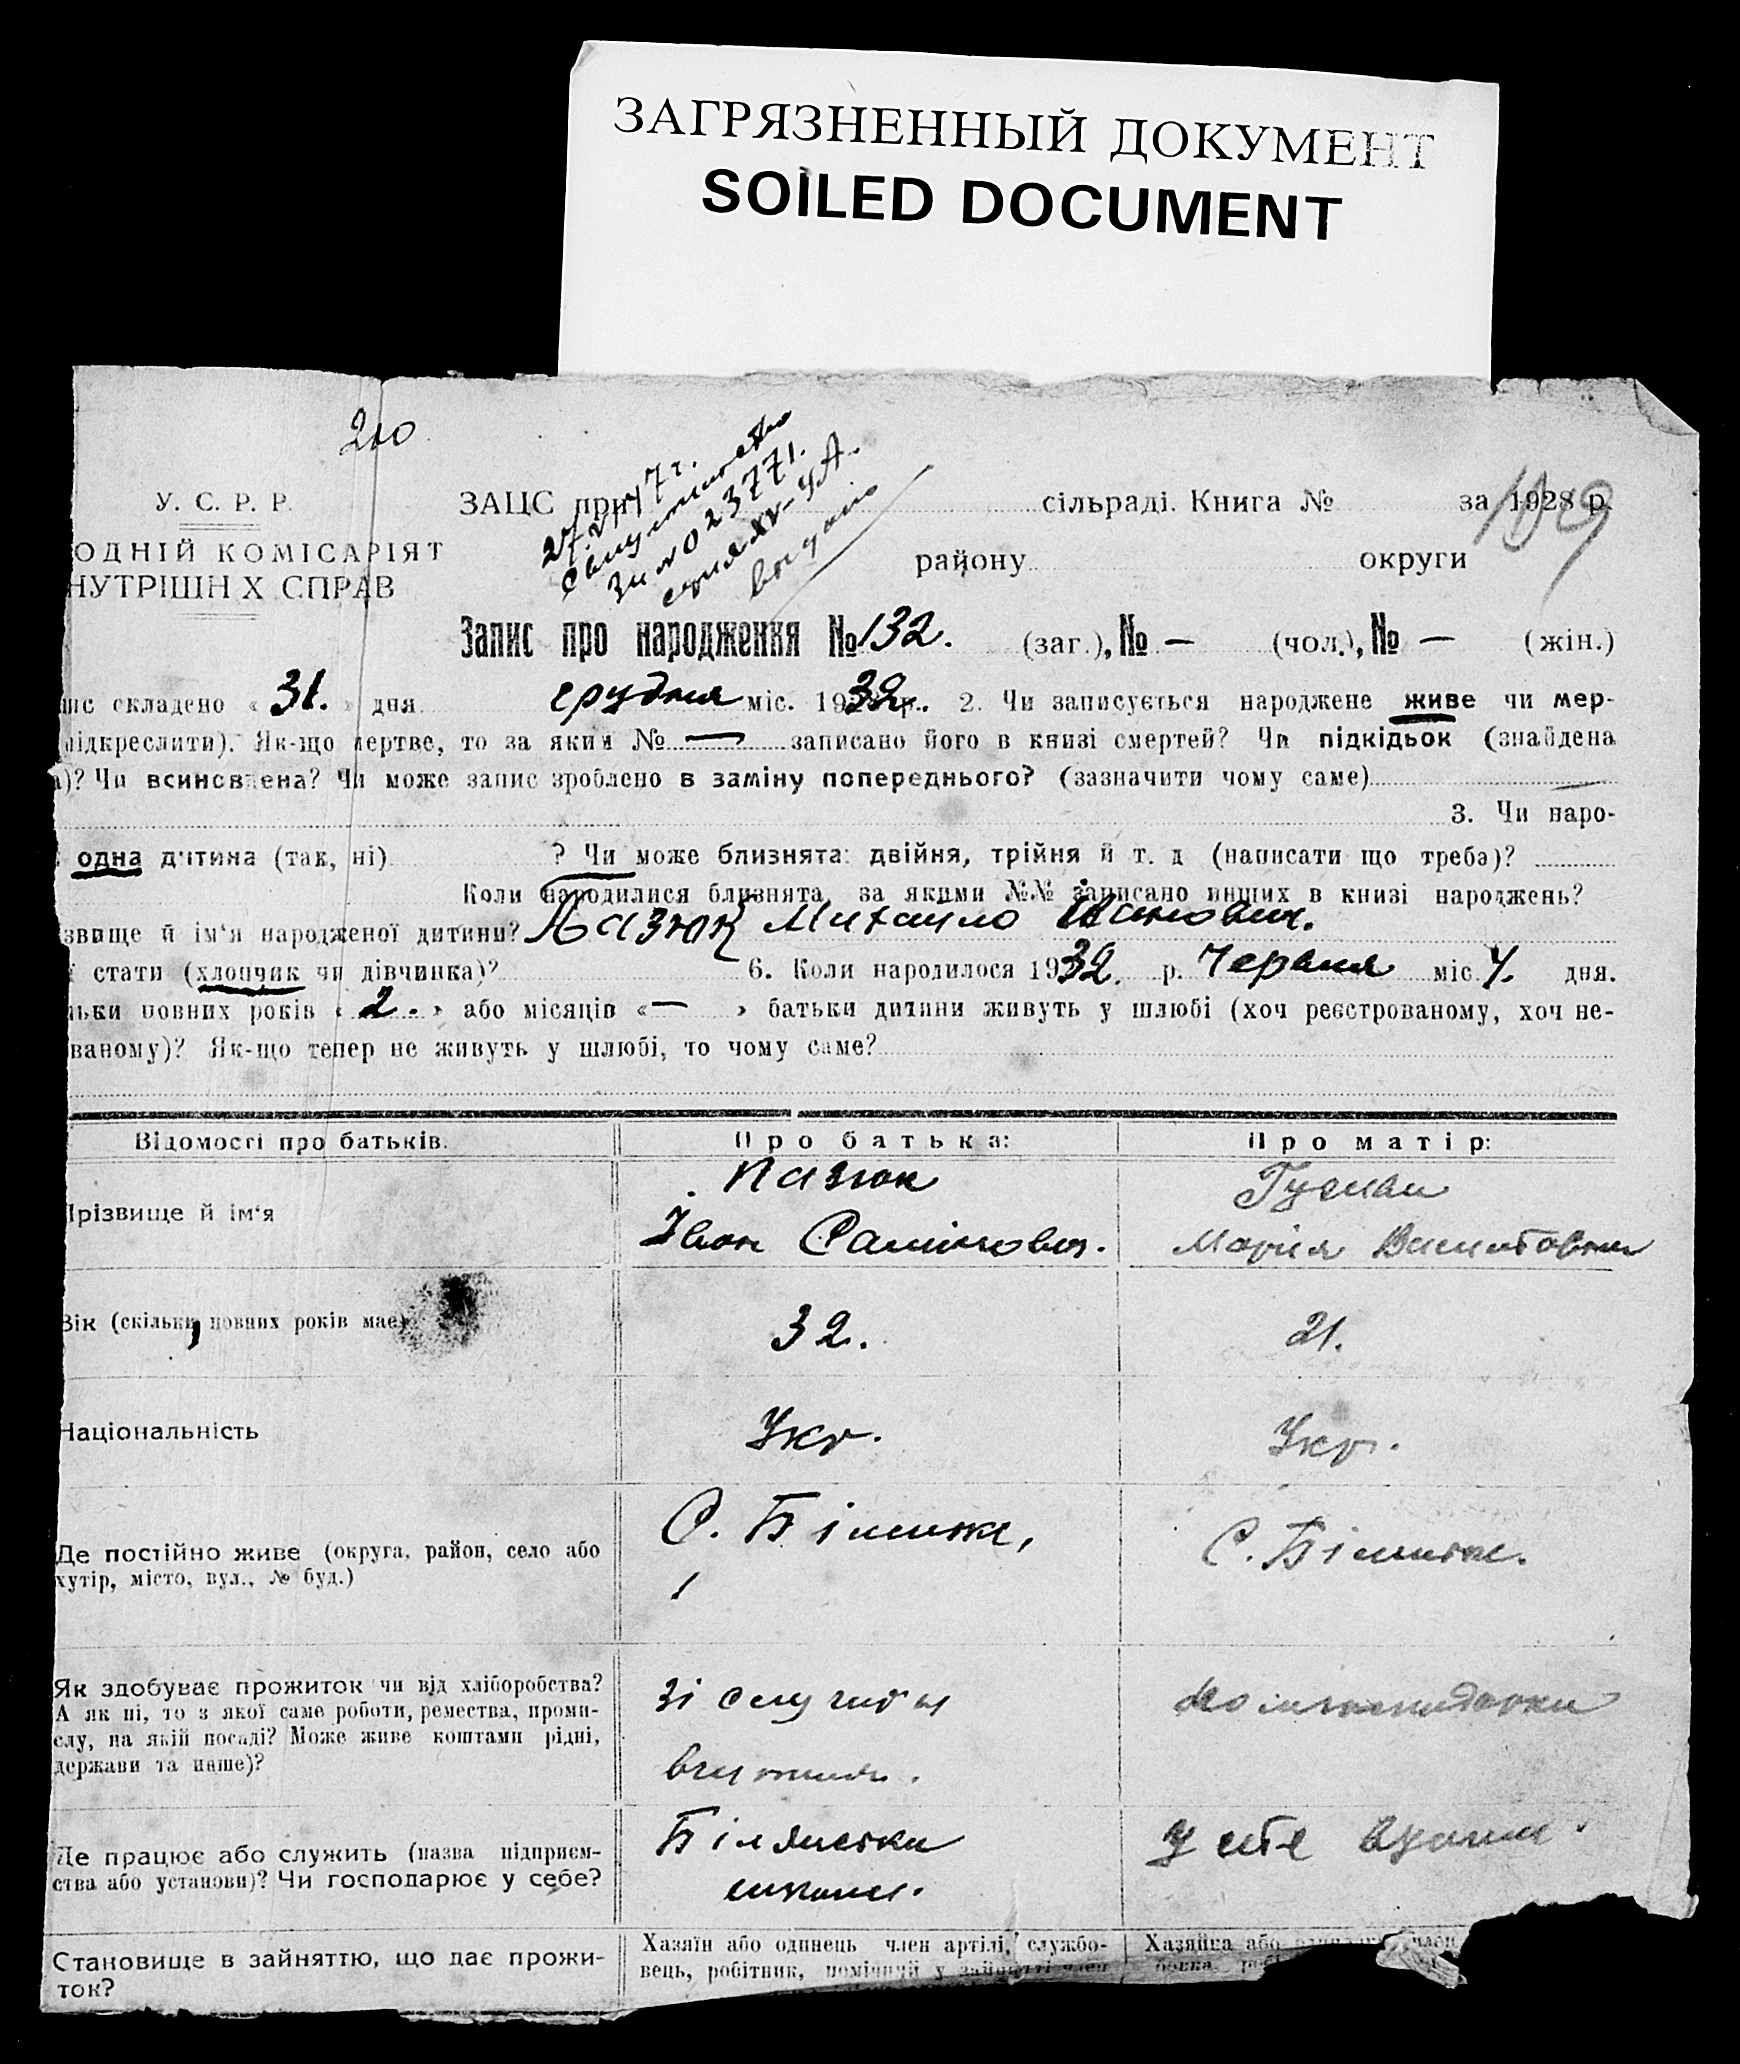 ЗАГРЯЗНЕННЫЙ ДОКУМЕНТ
SOILED DOCUMENT
210
27.2.47 г.
Свидетельство
023771.
выдано
109
У. С. Р. Р.
ОДНІЙ КОМІСАРІЯТ
НУТРІШН Х СПРАВ
ЗАЦС при сільраді. Книга № за 1928 р.
району округи
Запис про народження № 132. (заг.), № — (чол.), № — (жін.)
ис складено « 31. » дня грудня міс. 1932 р. 2. Чи записується народжене живе чи мер-
підкреслити). Як-що мертве, то за яким № — записано його в книзі смертей? Чи підкідьок (знайдена
а)? Чи всиновлена? Чи може запис зроблено в заміну попереднього? (зазначити чому саме) —
3. Чи наро-
одна дитина (так, ні) ? Чи може близнята: двійня, трійня й т. д (написати що треба)?
Коли народилися близнята, за якими №№ записано инших в книзі народжень?
звище й ім'я народженої дитини? Пазюк Михайло Іванович.
ї стати (хлопчик чи дівчинка)? 6. Коли народилося 1932. р. Червня міс. 4. дня.
льки повних років « 2. » або місяців « — » батьки дитини живуть у шлюбі (хоч реєстрованому, хоч не-
ваному)? Як-що тепер не живуть у шлюбі, то чому саме?
Відомості про батьків. Про батька: Про матір:
Прізвище й ім'я
Пазюк
Іван
Марія
Вік (скільки повних років має) 32. 21.
Національність Укр. Укр.
Де постійно живе (округа, район, село або
хутір, місто, вул., № буд.)
С.
С.
Як здобуває прожиток чи від хліборобства?
А як ні, то з якої саме роботи, ремества, проми-
слу, на якій посаді? Може живе коштами рідні,
держави та инше)?
Де працює або служить (назва підприєм-
ства або установи)? Чи господарює у себе?
Становище в зайняттю, що дає прожи-
ток?
Хазяїн або одинець член артілі, службо-
вець, робітник, помічний у
Хазяйка або